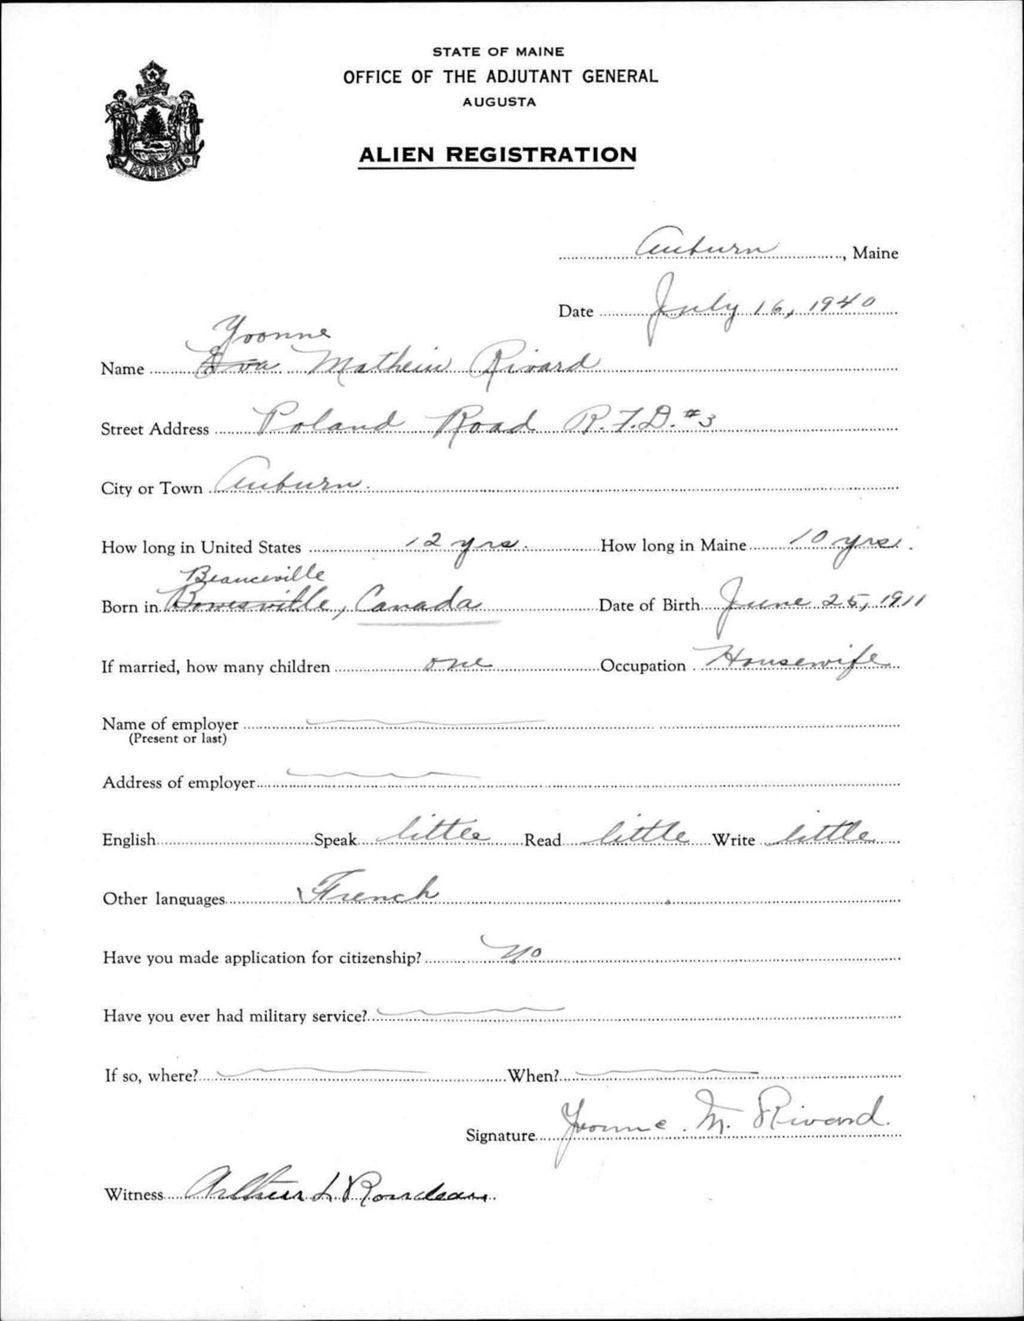 STATE OF MAINE
OFFICE OF THE ADJUTANT GENERAL
AUGUSTA
ALIEN REGISTRATION
MAINE
Auburn, Maine
Date July 16, 1940
Yvonne
Name Eva Mathein Rivard
Street Address Poland Road R.F.D. #3
City or Town Auburn.
How long in United States 12 yrs. How long in Maine 10 yrs.
Beauceville
Born in Bowesville, Canada Date of Birth June 25, 1911
If married, how many children one Occupation Housewife
Name of employer
(Present or last)
Address of employer
English Speak little Read little Write little
Other languages French
Have you made application for citizenship? No
Have you ever had military service?
If so, where? When?
Signature Yvonne M. Rivard
Witness Arthur L